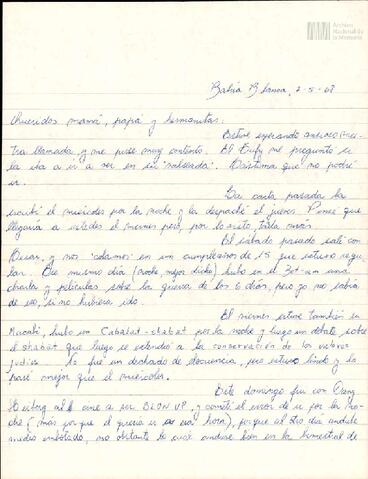 Archivo
Nacional de
la Memoria
Bahía Blanca, 2-5-68
Queridos mamá, papá y hermanitas:
Estuve esperando ansioso vues-
tra llamada y me puse muy contento. El me preguntó si
la iba a ir a ver en su "malvada". Lástima que no podré
ir.
La carta pasada la
escribí el miércoles por la noche y la despaché el jueves. Pensé que
llegaría a ustedes el viernes pero, por lo visto, tarda más.
El sábado pasado salí con
Oscar, y nos "colamos" en un cumpleaños de 15 que estuvo regu-
lar. Ese mismo día (noche, mejor dicho) hubo en el Bet-am una
charla y películas sobre la guerra de los 6 días, pero yo no sabía
de eso, si no hubiera ido.
El viernes estuve también en
Macabi, hubo un Cabalat-shabat por la noche y luego un debate sobre
el shabat que luego se extendió a la conservación de los valores
judíos. Yo fui un dechado de elocuencia, pero estuvo lindo y la
pasé mejor que el miércoles.
Este domingo fui con
al cine a ver BLOW UP, y cometí el error de ir por la no-
che (más porque él quería ir a esa hora), porque al otro día anduve
medio embotado, no obstante lo cual anduve bien en la bimestral de